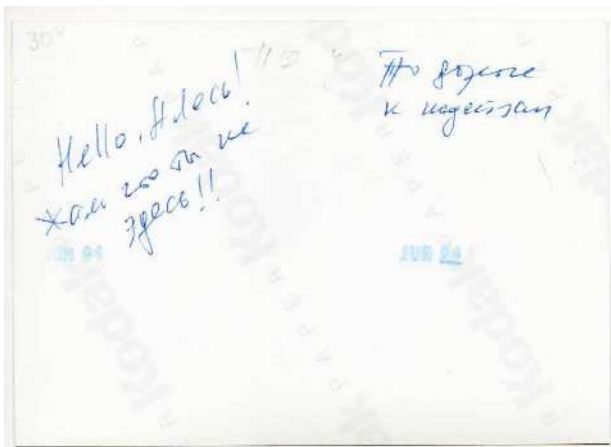 30ч
Hello, Алесь!
Жаль что ты не
здесь!!
По дороге
к индейцам
JUN 94
JUN 94
Kodak